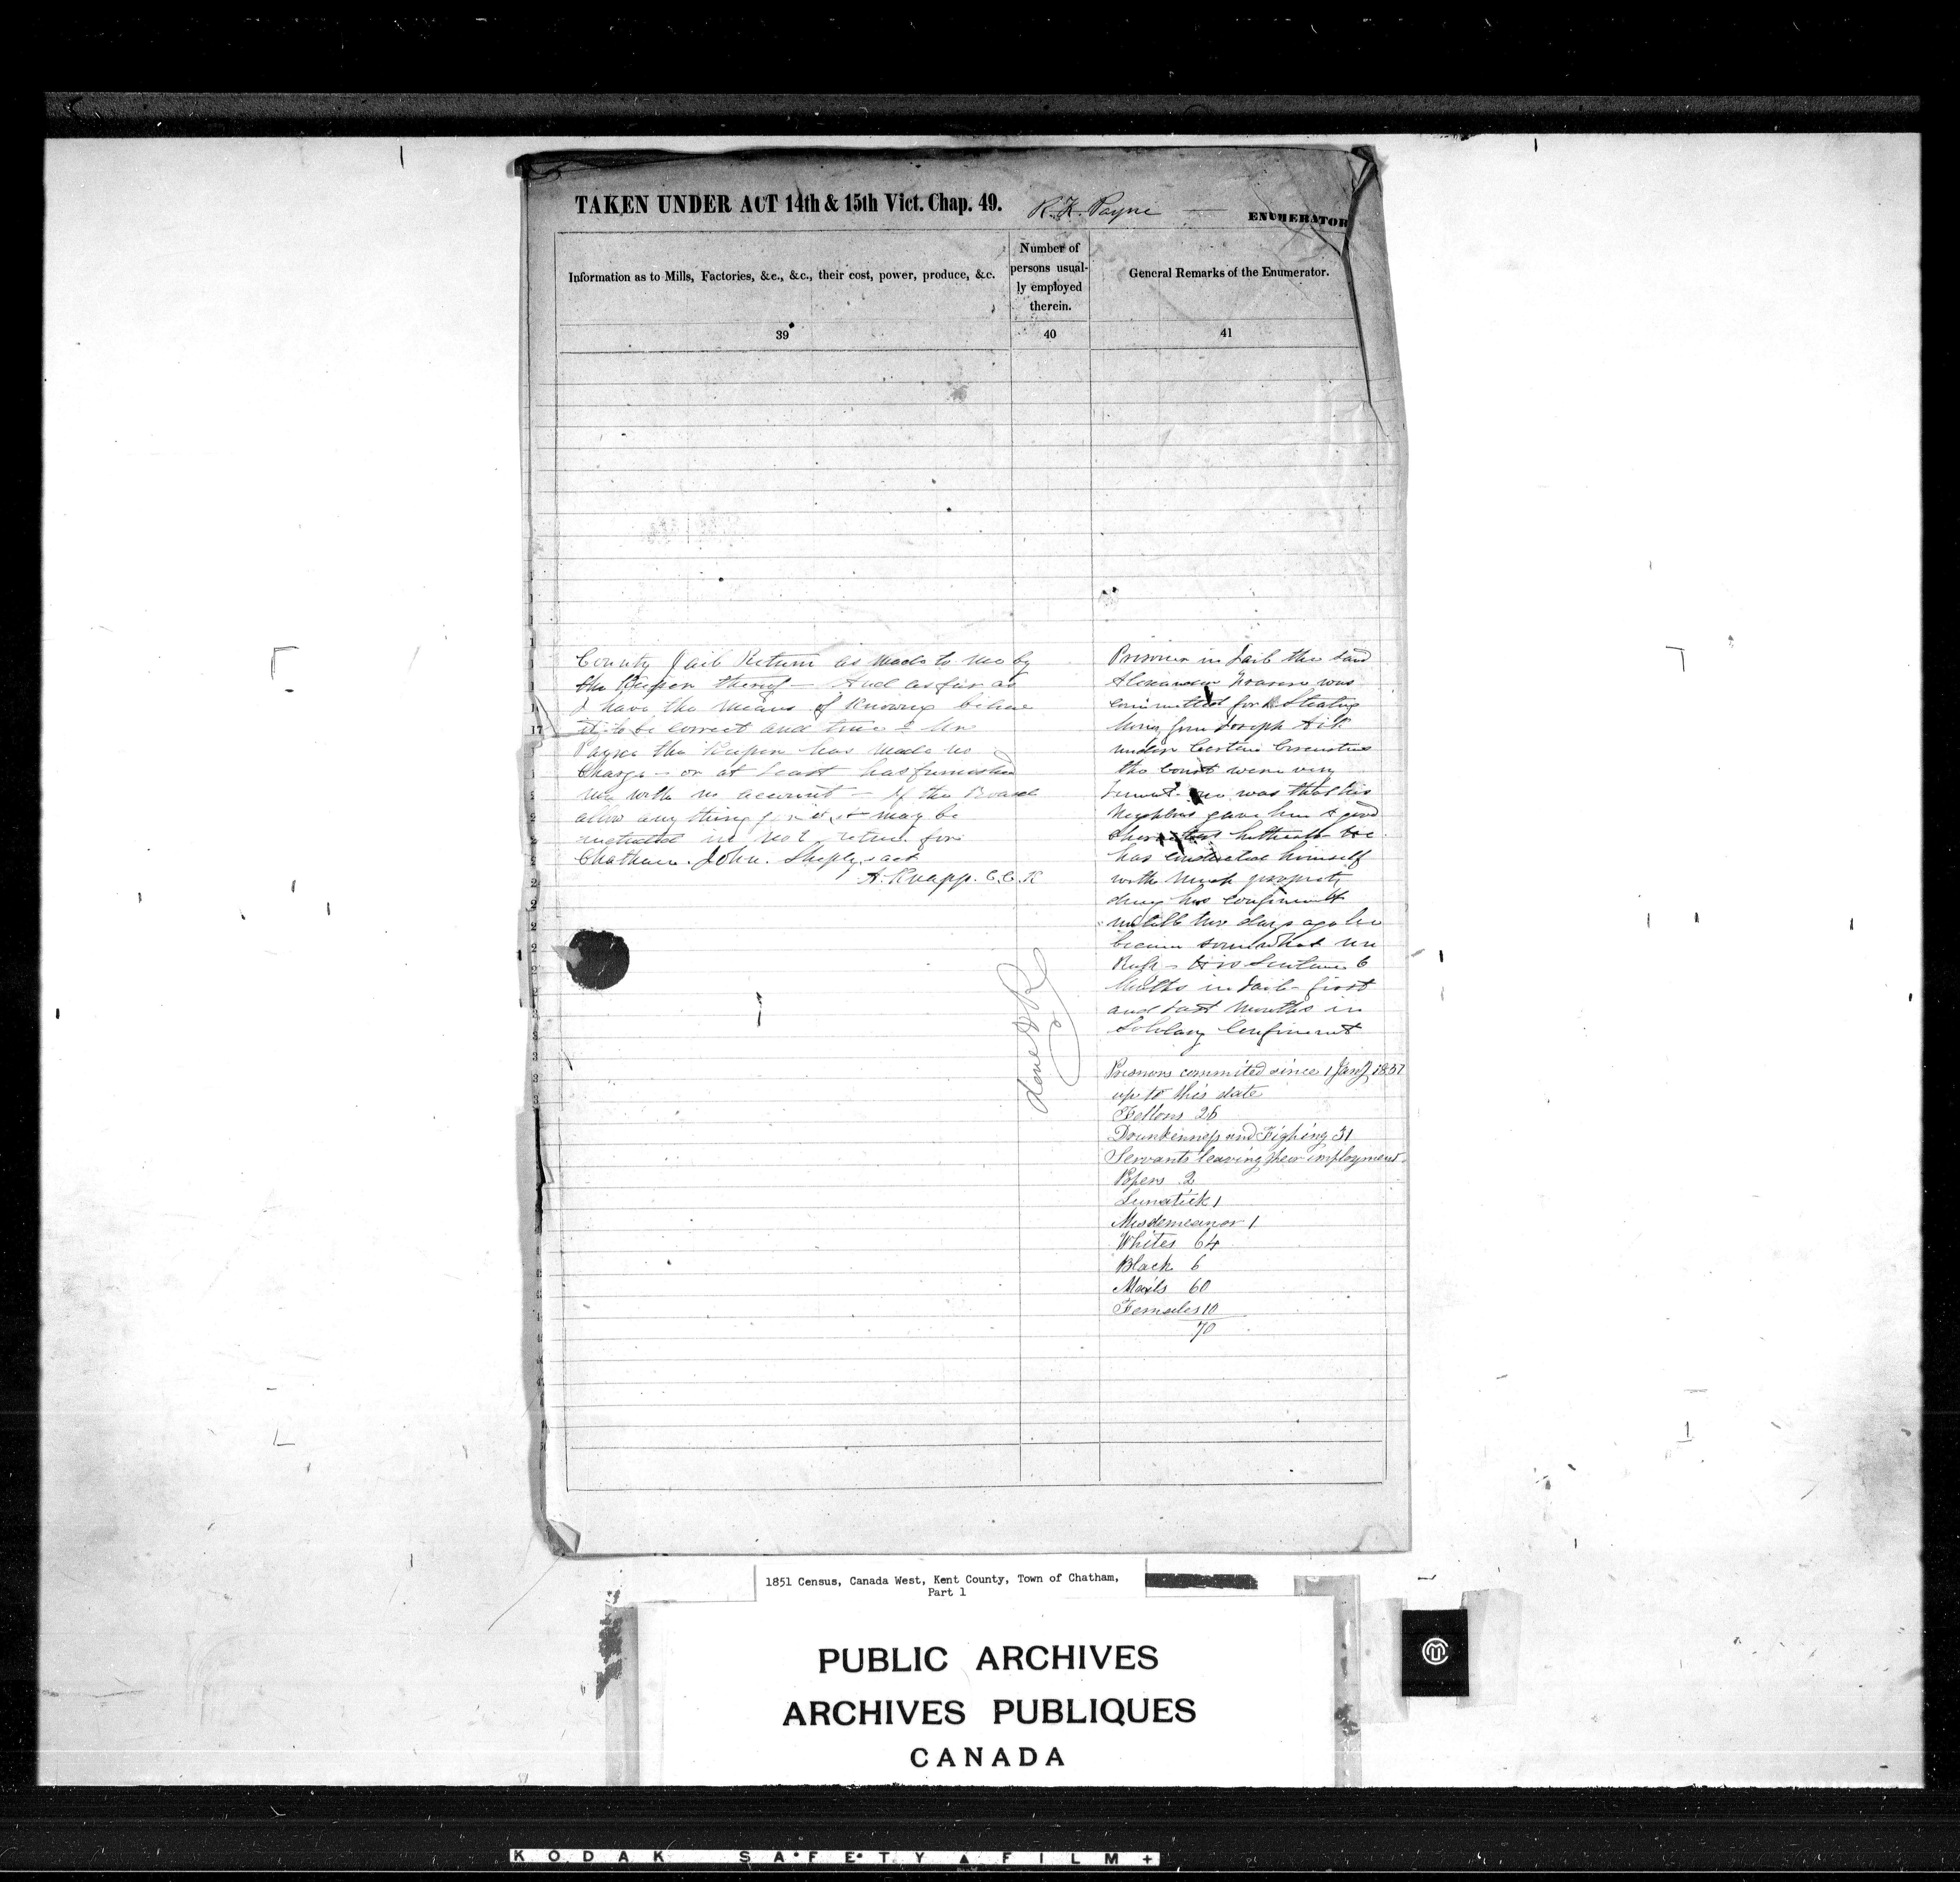 TAKEN UNDER ACT 14th & 15th Vict. Chap. 49. R. K. Payne — ENUMERATOR
Information as to Mills, Factories, &c., &c., their cost, power, produce, &c.
Number of
persons usual-
ly employed
therein.
General Remarks of the Enumerator.
39
40
41
County Jail Return as made to me by
the Keeper thereof — And as far as
I have the means of Knowing believe
it to be correct and true — Mr
Payne the Keeper has made no
Charge — or at least has furnished
me with no account — If the Board
allow any thing for it, it may be
in return for
Chatham. John
A. Knapp. C.C.K
done
Prisoner in Jail the said
Alexander was
committed for Stealing
Money from Joseph
under Certain
the court were very
was that his
Neighbors gave him a good
he
has conducted himself
with much
his confinement
untill two days ago he
became somewhat un
His Sentence 6
Months in Jail first
and last months in
Solitary Confinement
Prisnors commited since 1 Jany
up to this date
Fellons 26
Drunkenness and Fighing 31
Servants leaving their employment
Popers 2
Lunatick 1
Misdemeanor 1
Whites 64
Black 6
Mails 60
Females 10
70
1851 Census, Canada West, Kent County, Town of Chatham,
Part 1
PUBLIC ARCHIVES
ARCHIVES PUBLIQUES
CANADA
KODAK SAFETY FILM